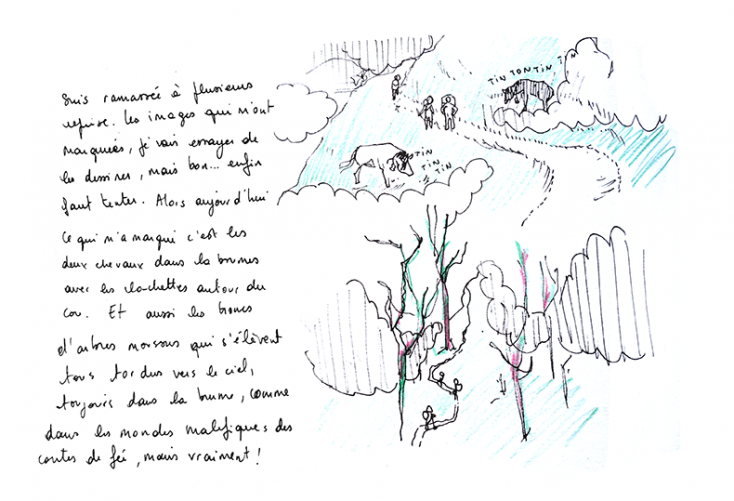 Suis ramassée à plusieurs
reprise. Les images qui m'ont
marquées, je vais essayer de
les dessiner, mais bon... enfin
faut tenter. Alors aujourd'hui
ce qui m'a marqué c'est les
deux chevaux dans la brumes
avec les clochettes autour du
cou. Et aussi les troncs
d'arbres morssous qui s'élèvent
tous tordus vers le ciel,
toujours dans la brume, comme
dans les mondes maléfiques des
contes de fée, mais vraiment !
TIN TON TIN TIN
TIN
TIN
TIN